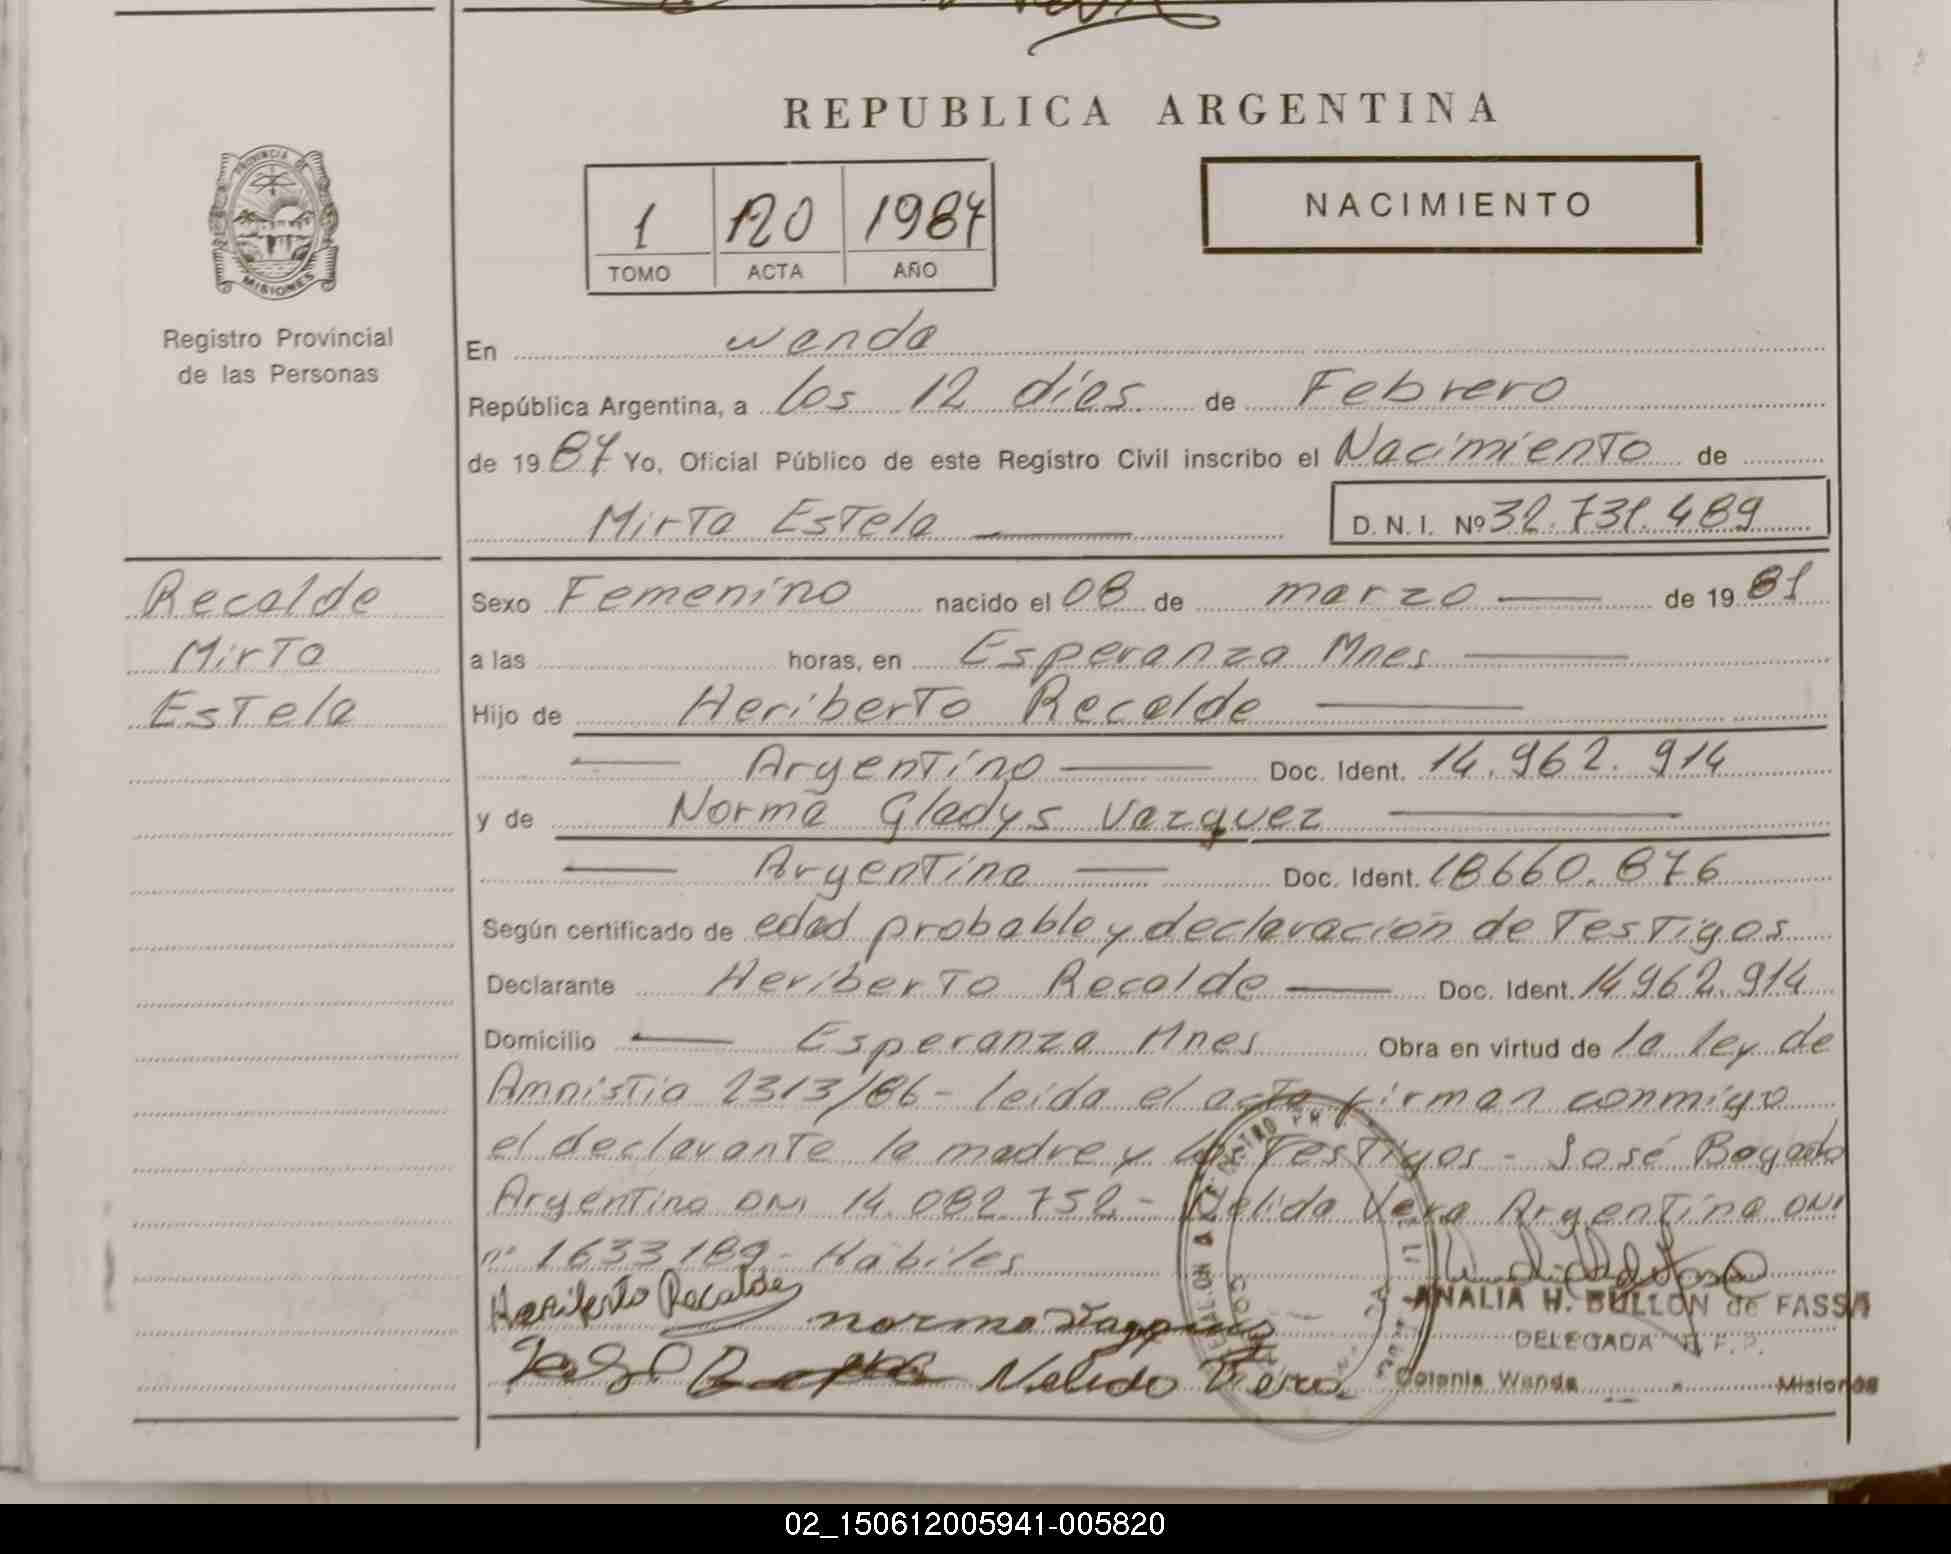 REPUBLICA ARGENTINA
PROVINCIA DE
MISIONES
Registro Provincial
de las Personas
1 120 1987
TOMO ACTA AÑO
NACIMIENTO
En Wanda
República Argentina, a los 12 días de Febrero
de 1987 Yo, Oficial Público de este Registro Civil inscribo el Nacimiento de
Mirta Estela D. N. I. Nº 32.731.489
Recalde
Mirta
Estela
Sexo Femenino nacido el 08 de marzo de 1981
a las horas, en Esperanza Mnes
Hijo de Heriberto Recalde
Argentino Doc. Ident. 14.962.914
y de Norma Gladys Vazquez
Argentina Doc. Ident. 18660.876
Según certificado de edad probable y declaracion de Testigos
Declarante Heriberto Recalde Doc. Ident. 14962.914
Domicilio Esperanza Mnes Obra en virtud de la ley de
Amnistia 2313/86 - leida el acta firman conmigo
el declarante la madre y los Testigos - José Bogado
Argentino DNI 14.082.752 - Nelida Vera Argentina DNI
nº 1633189 - Habiles
Heriberto Recalde
norma
Nelida Viera
ANALIA H. BULLON de FASSA
DELEGADA R. P. P.
Colonia Wanda Misiones
02_150612005941-005820